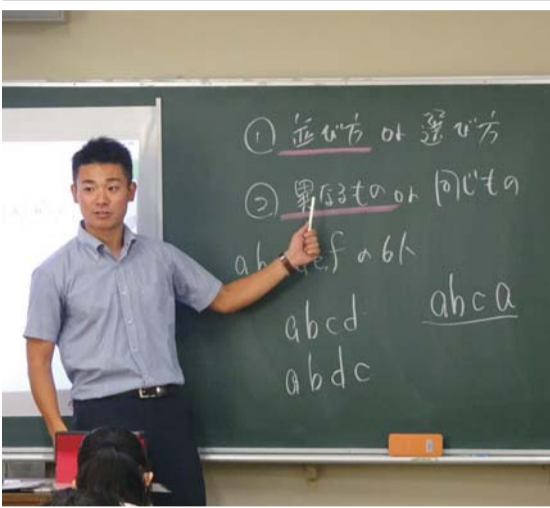 ① 並び方 or 選び方
② 異なるもの or 同じもの
abcdef の6人
abcd
abdc
abca